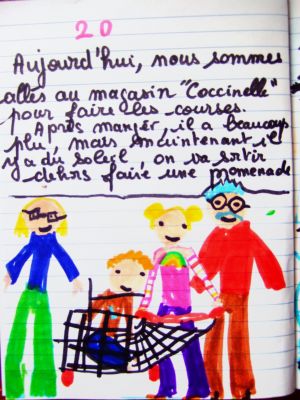 20
Aujourd'hui, nous sommes
allés au magasin "Coccinelle"
pour faire les courses.
Après manger, il a beaucoup
plu, mais maintenant il
y a du soleil, on va sortir
dehors faire une promenade